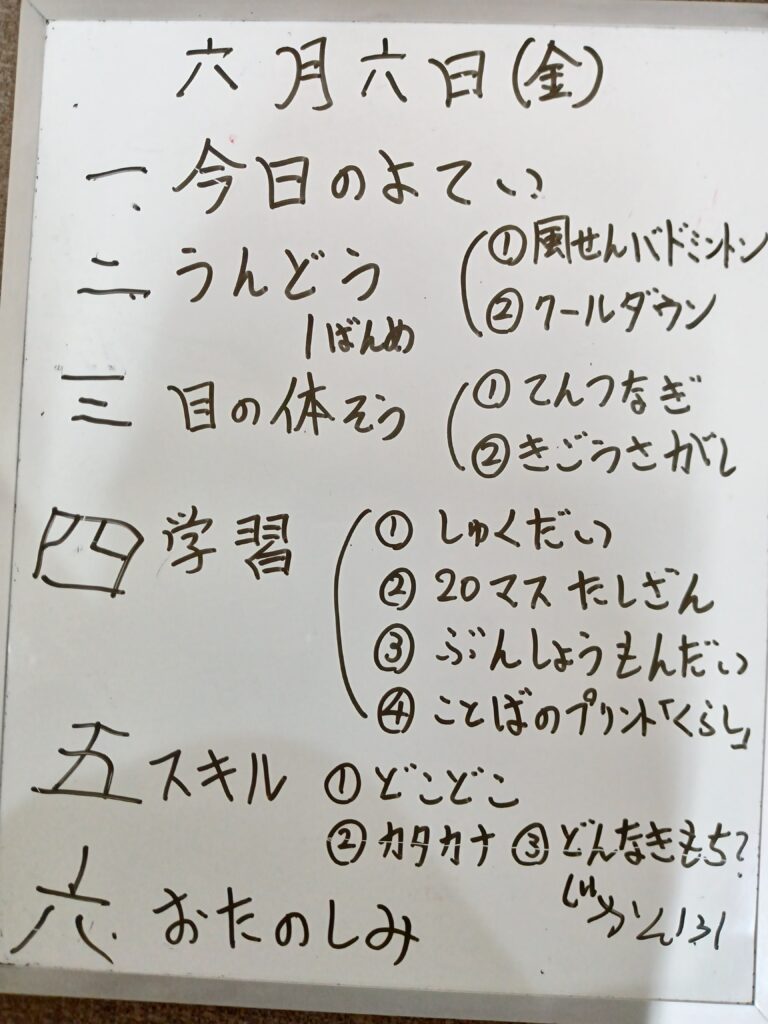 六月六日(金)
一、今日のよてい
二、うんどう
①風せんバドミントン
②クールダウン
1ばんめ
三 目の体そう
①てんつなぎ
②きごうさがし
四 学習
①しゅくだい
②20マスたしざん
③ぶんしょうもんだい
④ことばのプリント「くらし」
五 スキル ①どこどこ
②カタカナ ③どんなきもち?
六、おたのしみ